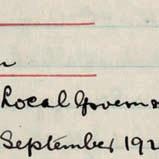 Local Govern
September 192